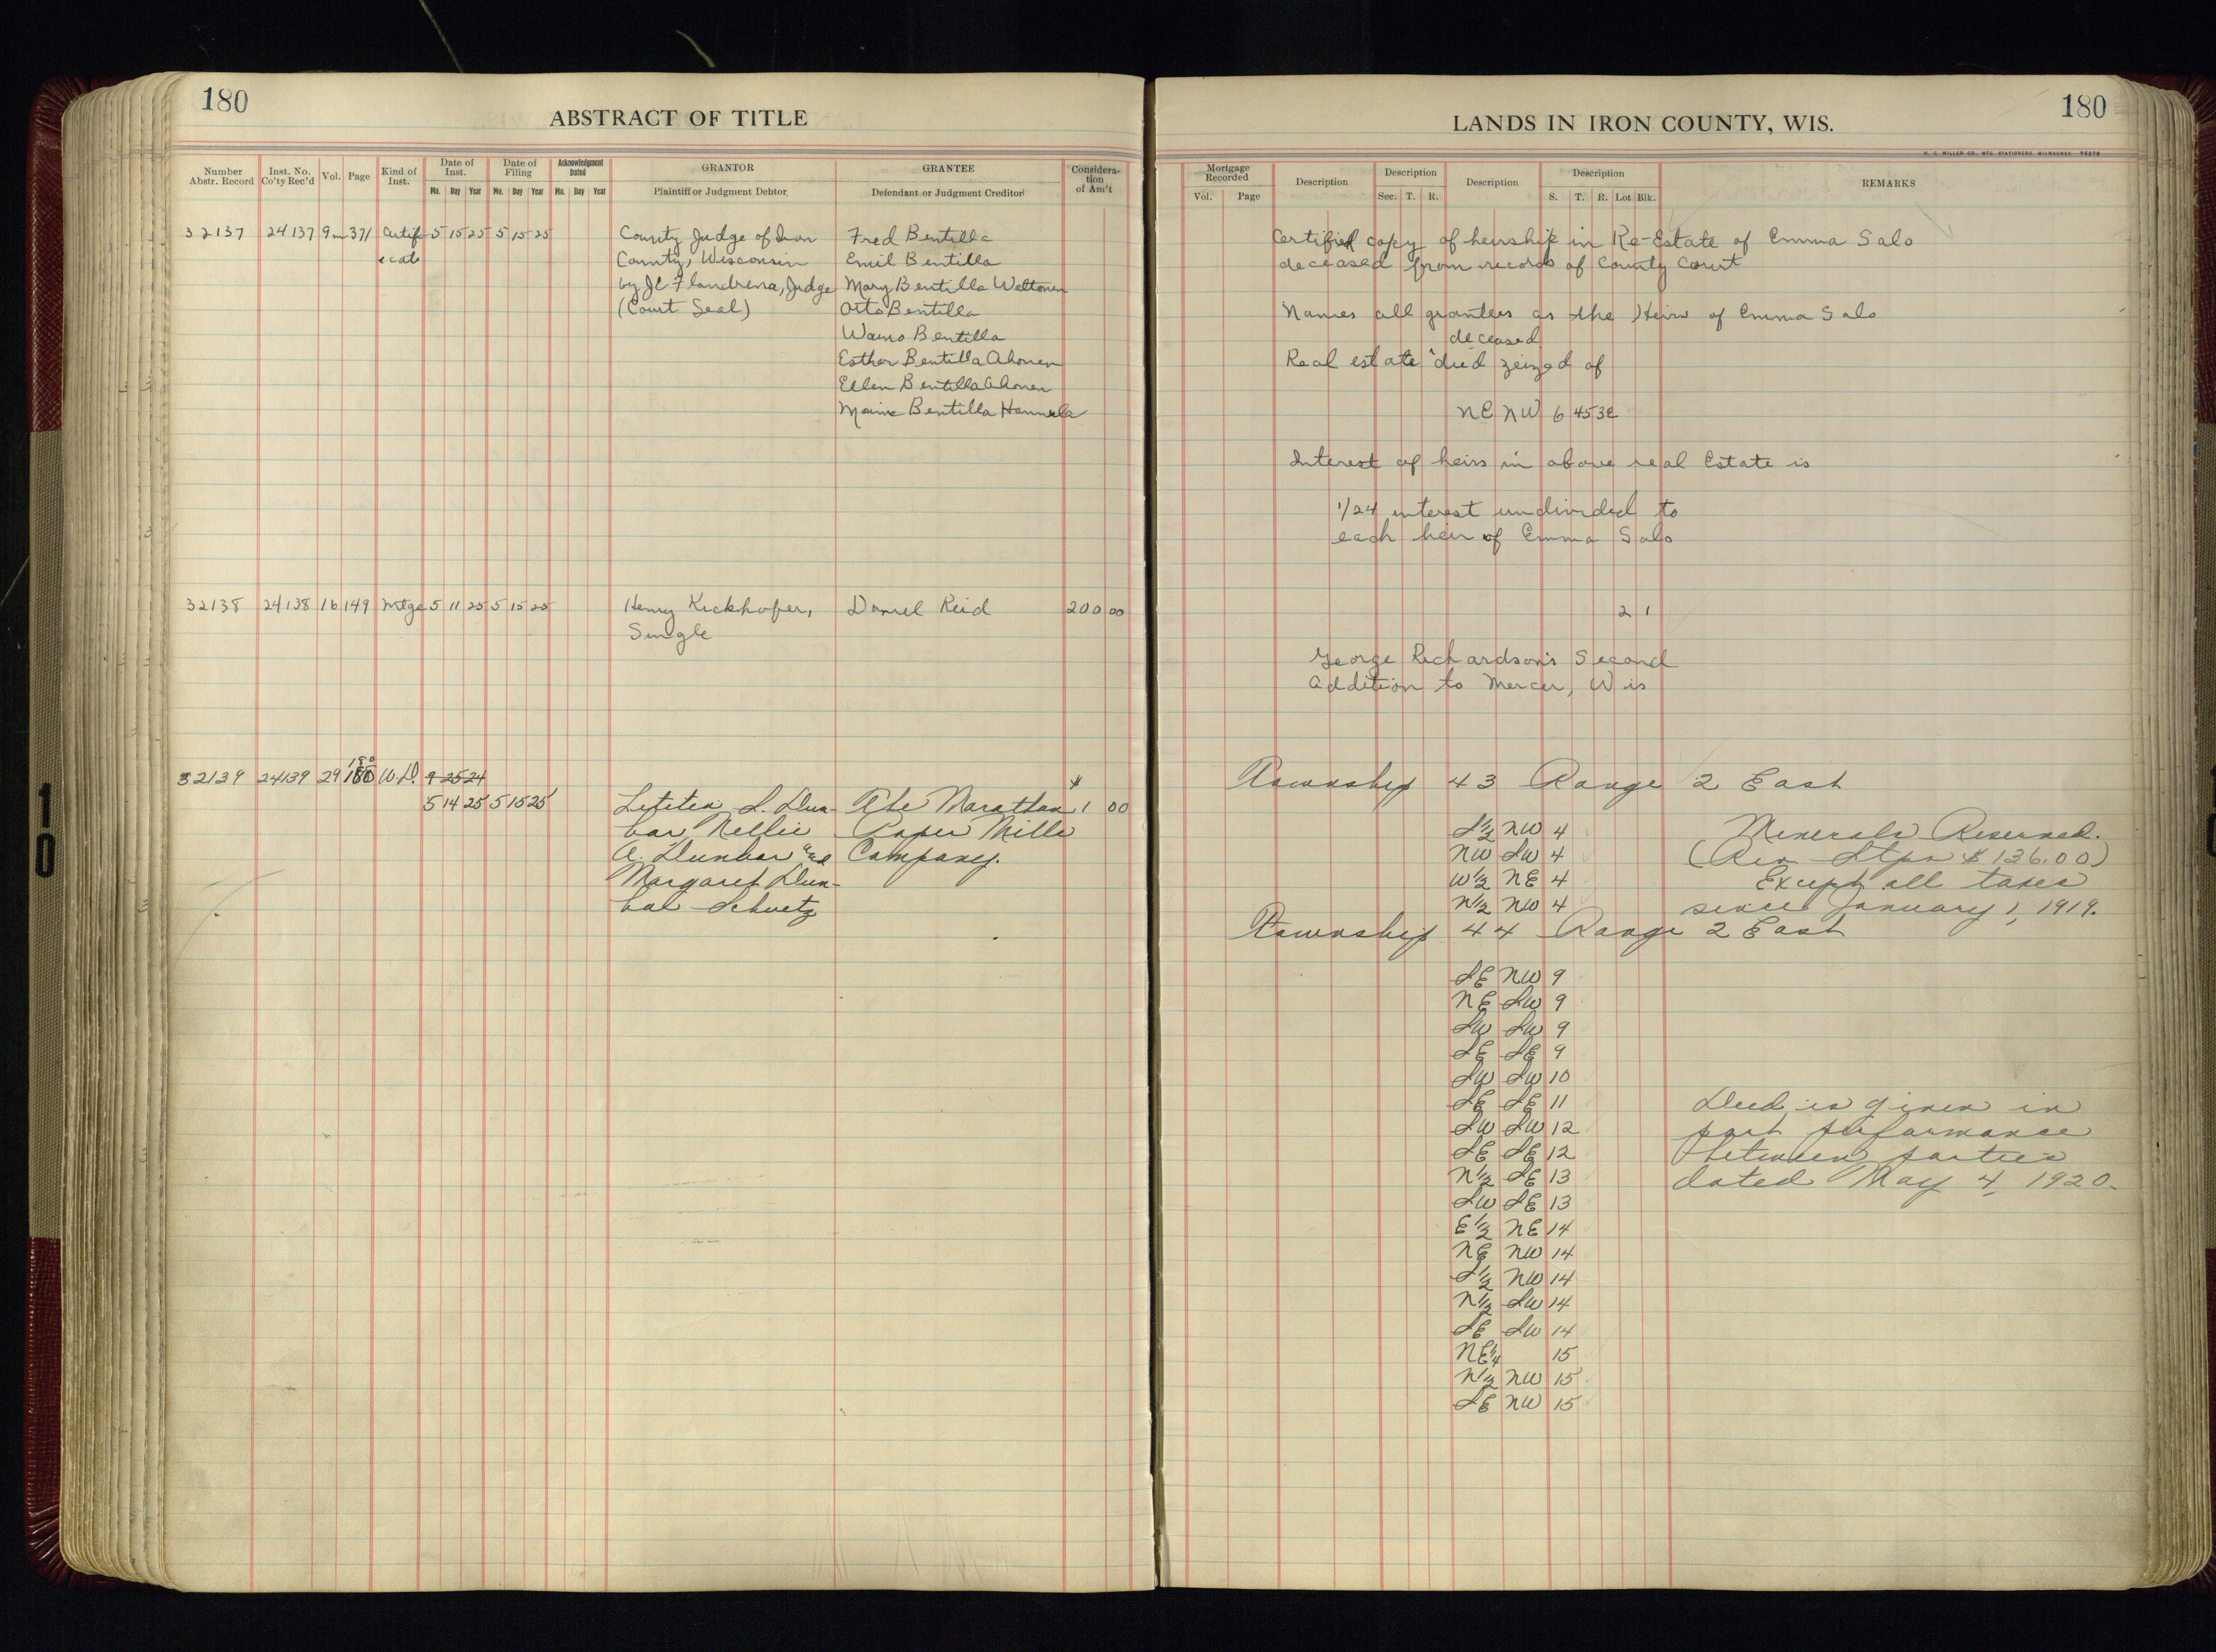 180
ABSTRACT OF TITLE
Number Abstr. Record
Inst. No. Co'ty Rec'd
Vol.
Page
Kind of Inst.
Date of Inst.
Mo. Day Year
Date of Filing
Mo. Day Year
Acknowledgment Dated
Mo. Day Year
GRANTOR
Plaintiff or Judgment Debtor
GRANTEE
Defendant or Judgment Creditor
Considera-
tion
of Am't
32137 24137 9m 371 Certif 5 15 25 5 15 25 County Judge of Iron Fred Bentilla
icate County, Wisconsin Emil Bentilla
by JC Flandrena, Judge Mary Bentilla Waltonen
(Court Seal) Otto Bentilla
Waino Bentilla
Esther Bentilla Ahonen
Ellen Bentilla Ahonen
Maine Bentilla Hannula
32138 24138 16 149 Mtge 5 11 25 5 15 25 Henry Kickhofer, Daniel Reid 200 00
Single
180
32139 24139 29 180 W.D. 9 25 24
5 14 25 5 15 25 Letitea L. Dun- The Marathon $1 00
bar Nellie Paper Mills
A. Dunbar and Company.
Margaret Dun-
bar Schuetz
180
LANDS IN IRON COUNTY, WIS.
H. C. MILLER CO., MFG. STATIONERS, MILWAUKEE
Mortgage Recorded
Vol. Page
Description
Description
Sec. T. R.
Description
Description
S. T. R. Lot Blk.
REMARKS
Certified copy of heirship in Re-Estate of Emma Salo
deceased from records of County Court
Names all grantees as the Heirs of Emma Salo
deceased
Real estate ^ died zeized of
NE NW 6 45 3E
Interest of heirs in above real Estate is
1/24 interest undivided to
each heir of Emma Salo
2 1
George Richardson's Second
Addition to Mercer, Wis
Township 43 Range 2 East
S½ NW 4 Minerals Reserved.
NW SW 4 (Rev Stps $136.00)
W½ NE 4 Except all taxes
N½ NW 4 since January 1, 1919.
Township 44 Range 2 East
SE NW 9
NE SW 9
SW SW 9
SE SE 9
SW SW 10
SE SE 11 Deed is given in
SW SW 12 part performance
SE SE 12 between parties
N½ SE 13 dated May 4, 1920.
SW SE 13
E½ NE 14
NE NW 14
S½ NW 14
N½ SW 14
SE SW 14
NE¼ 15
N½ NW 15
SE NW 15